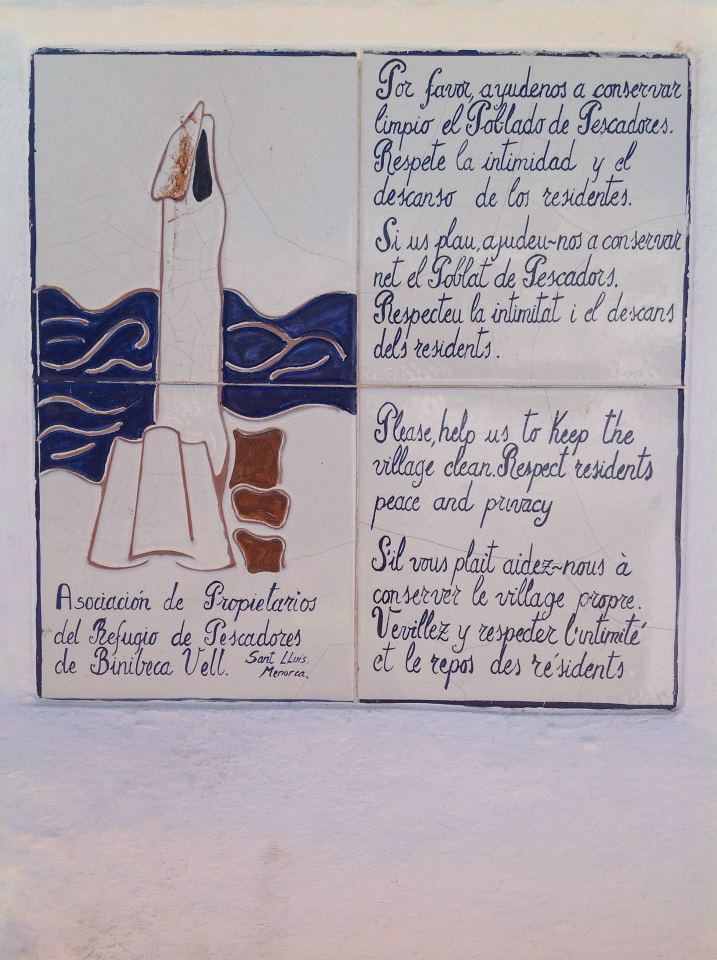 Por favor, ayudenos a conservar
limpio el Poblado de Pescadores.
Respete la intimidad y el
descanso de los residentes.
Si us plau, ajudeu-nos a conservar
net el Poblat de Pescadors.
Respecteu la intimitat i el descans
dels residents.
Please, help us to Keep the
village clean. Respect residents
peace and privacy
S'il vous plait aidez-nous à
conserver le village propre.
Vevillez y respecter l'intimité
et le repos des résidents
Asociación de Propietarios
del Refugio de Pescadores
de Binibeca Vell. Sant LLuis.
Menorca.